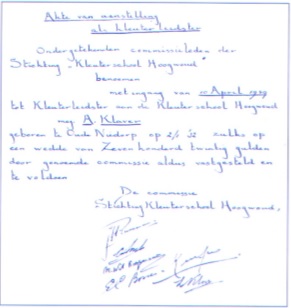 Akte van aanstelling
als kleuterleidster
Ondergetekenden commissieleden der
Stichting "Kleuterschool Hoogwoud"
benoemen
met ingang van 10 April 19
tot Kleuterleidster aan de Kleuterschool Hoogwoud
mej. A. Klaver
geboren te Oude Niedorp op 2/ 32 zulks op
een wedde van Zevenhonderd twintig gulden
door genoemde commissie aldus vastgesteld en
te voldoen
De commissie
Stichting Kleuterschool Hoogwoud.